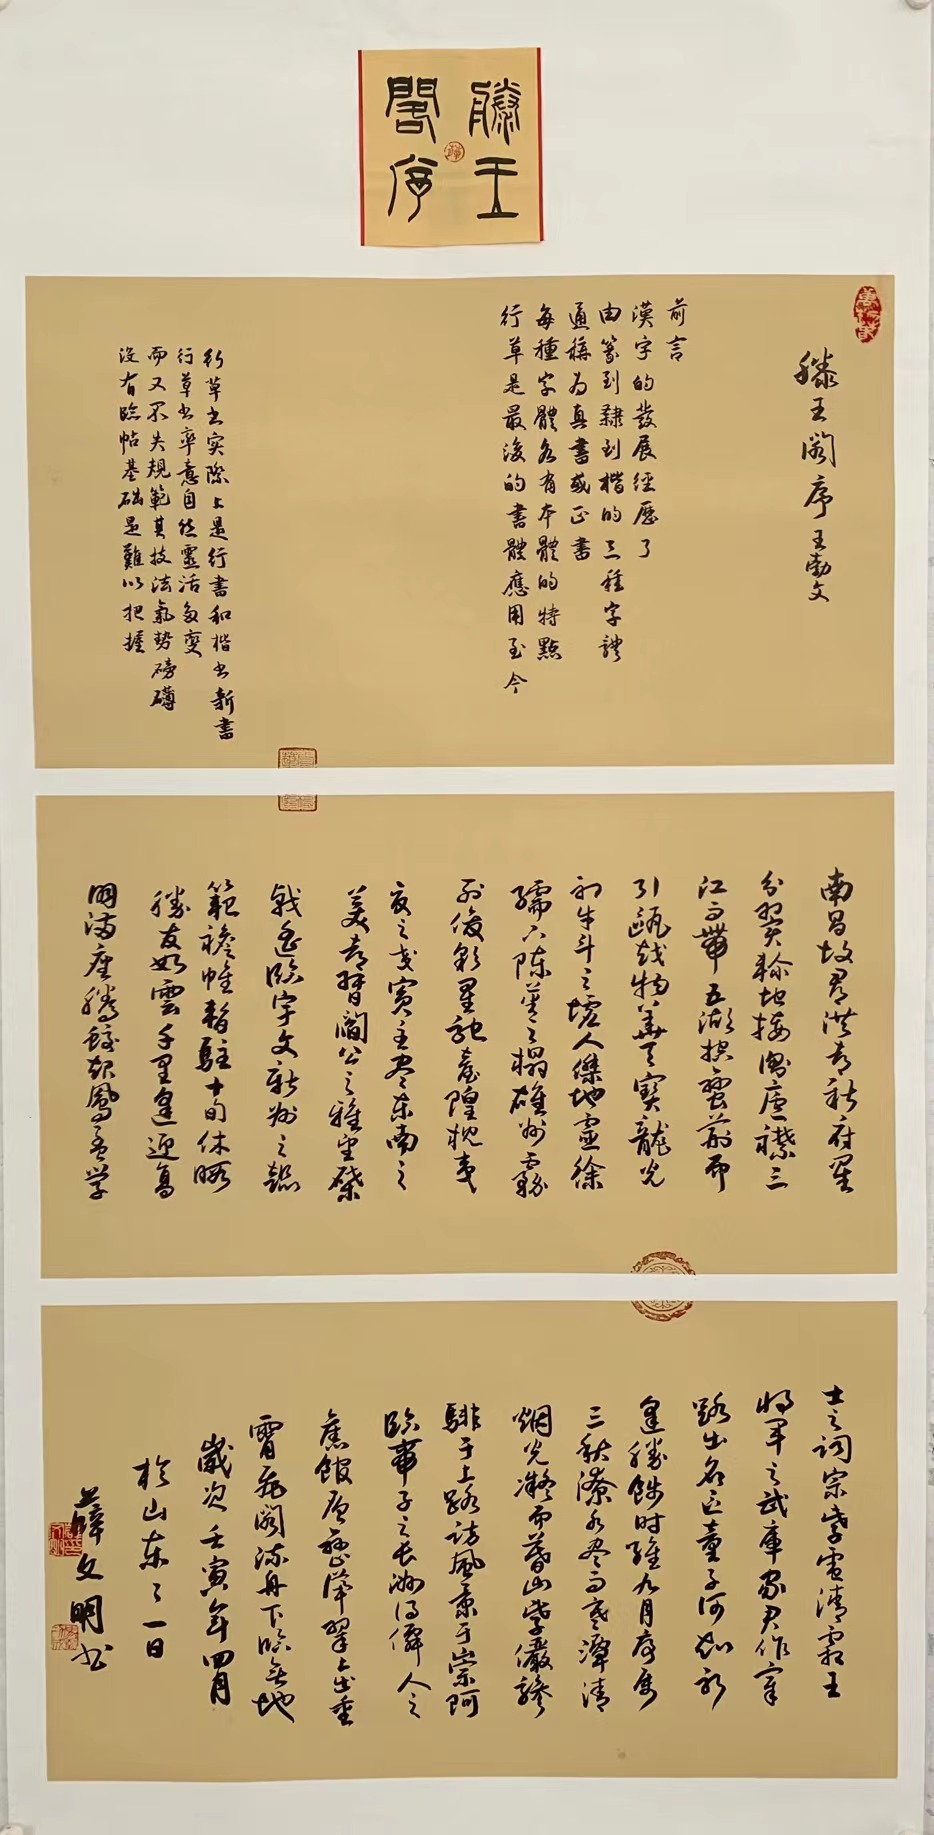 滕王
閣序
滕王阁序王勃文
前言
漢字的發展經歷了
由篆到隸到楷的三種字體
通稱为真書或正書
每種字體各有本體的特點
行草是最後的書體應用至今
行草书实際上是行書和楷书新書
行草书率意自然靈活多變
而又不失規範其技法氣势磅礴
没有臨帖基础是難以把握
南昌故郡洪都新府星
分翼轸地接衡廬襟三
江而帶五湖控蛮荆而
引甌越物華天寶龍光
射牛斗之墟人傑地靈徐
孺下陈蕃之榻雄州霧
列俊彩星馳臺隍枕夷
夏之交宾主尽东南之
美都督閻公之雅望棨
戟遥临宇文新州之懿
範襜帷暂駐十旬休暇
勝友如雲千里逢迎高
朋满座腾蛟起鳳孟学
士之词宗紫電清霜王
将军之武庫家君作宰
路出名区童子何知躬
逢勝餞时维九月序属
三秋潦水尽而寒潭清
烟光凝而暮山紫儼骖
騑于上路访風景于崇阿
临帝子之长洲得仙人之
舊館层巒聳翠上出重
霄飛阁流丹下临无地
歲次壬寅年四月
於山东
一日
薛文明书